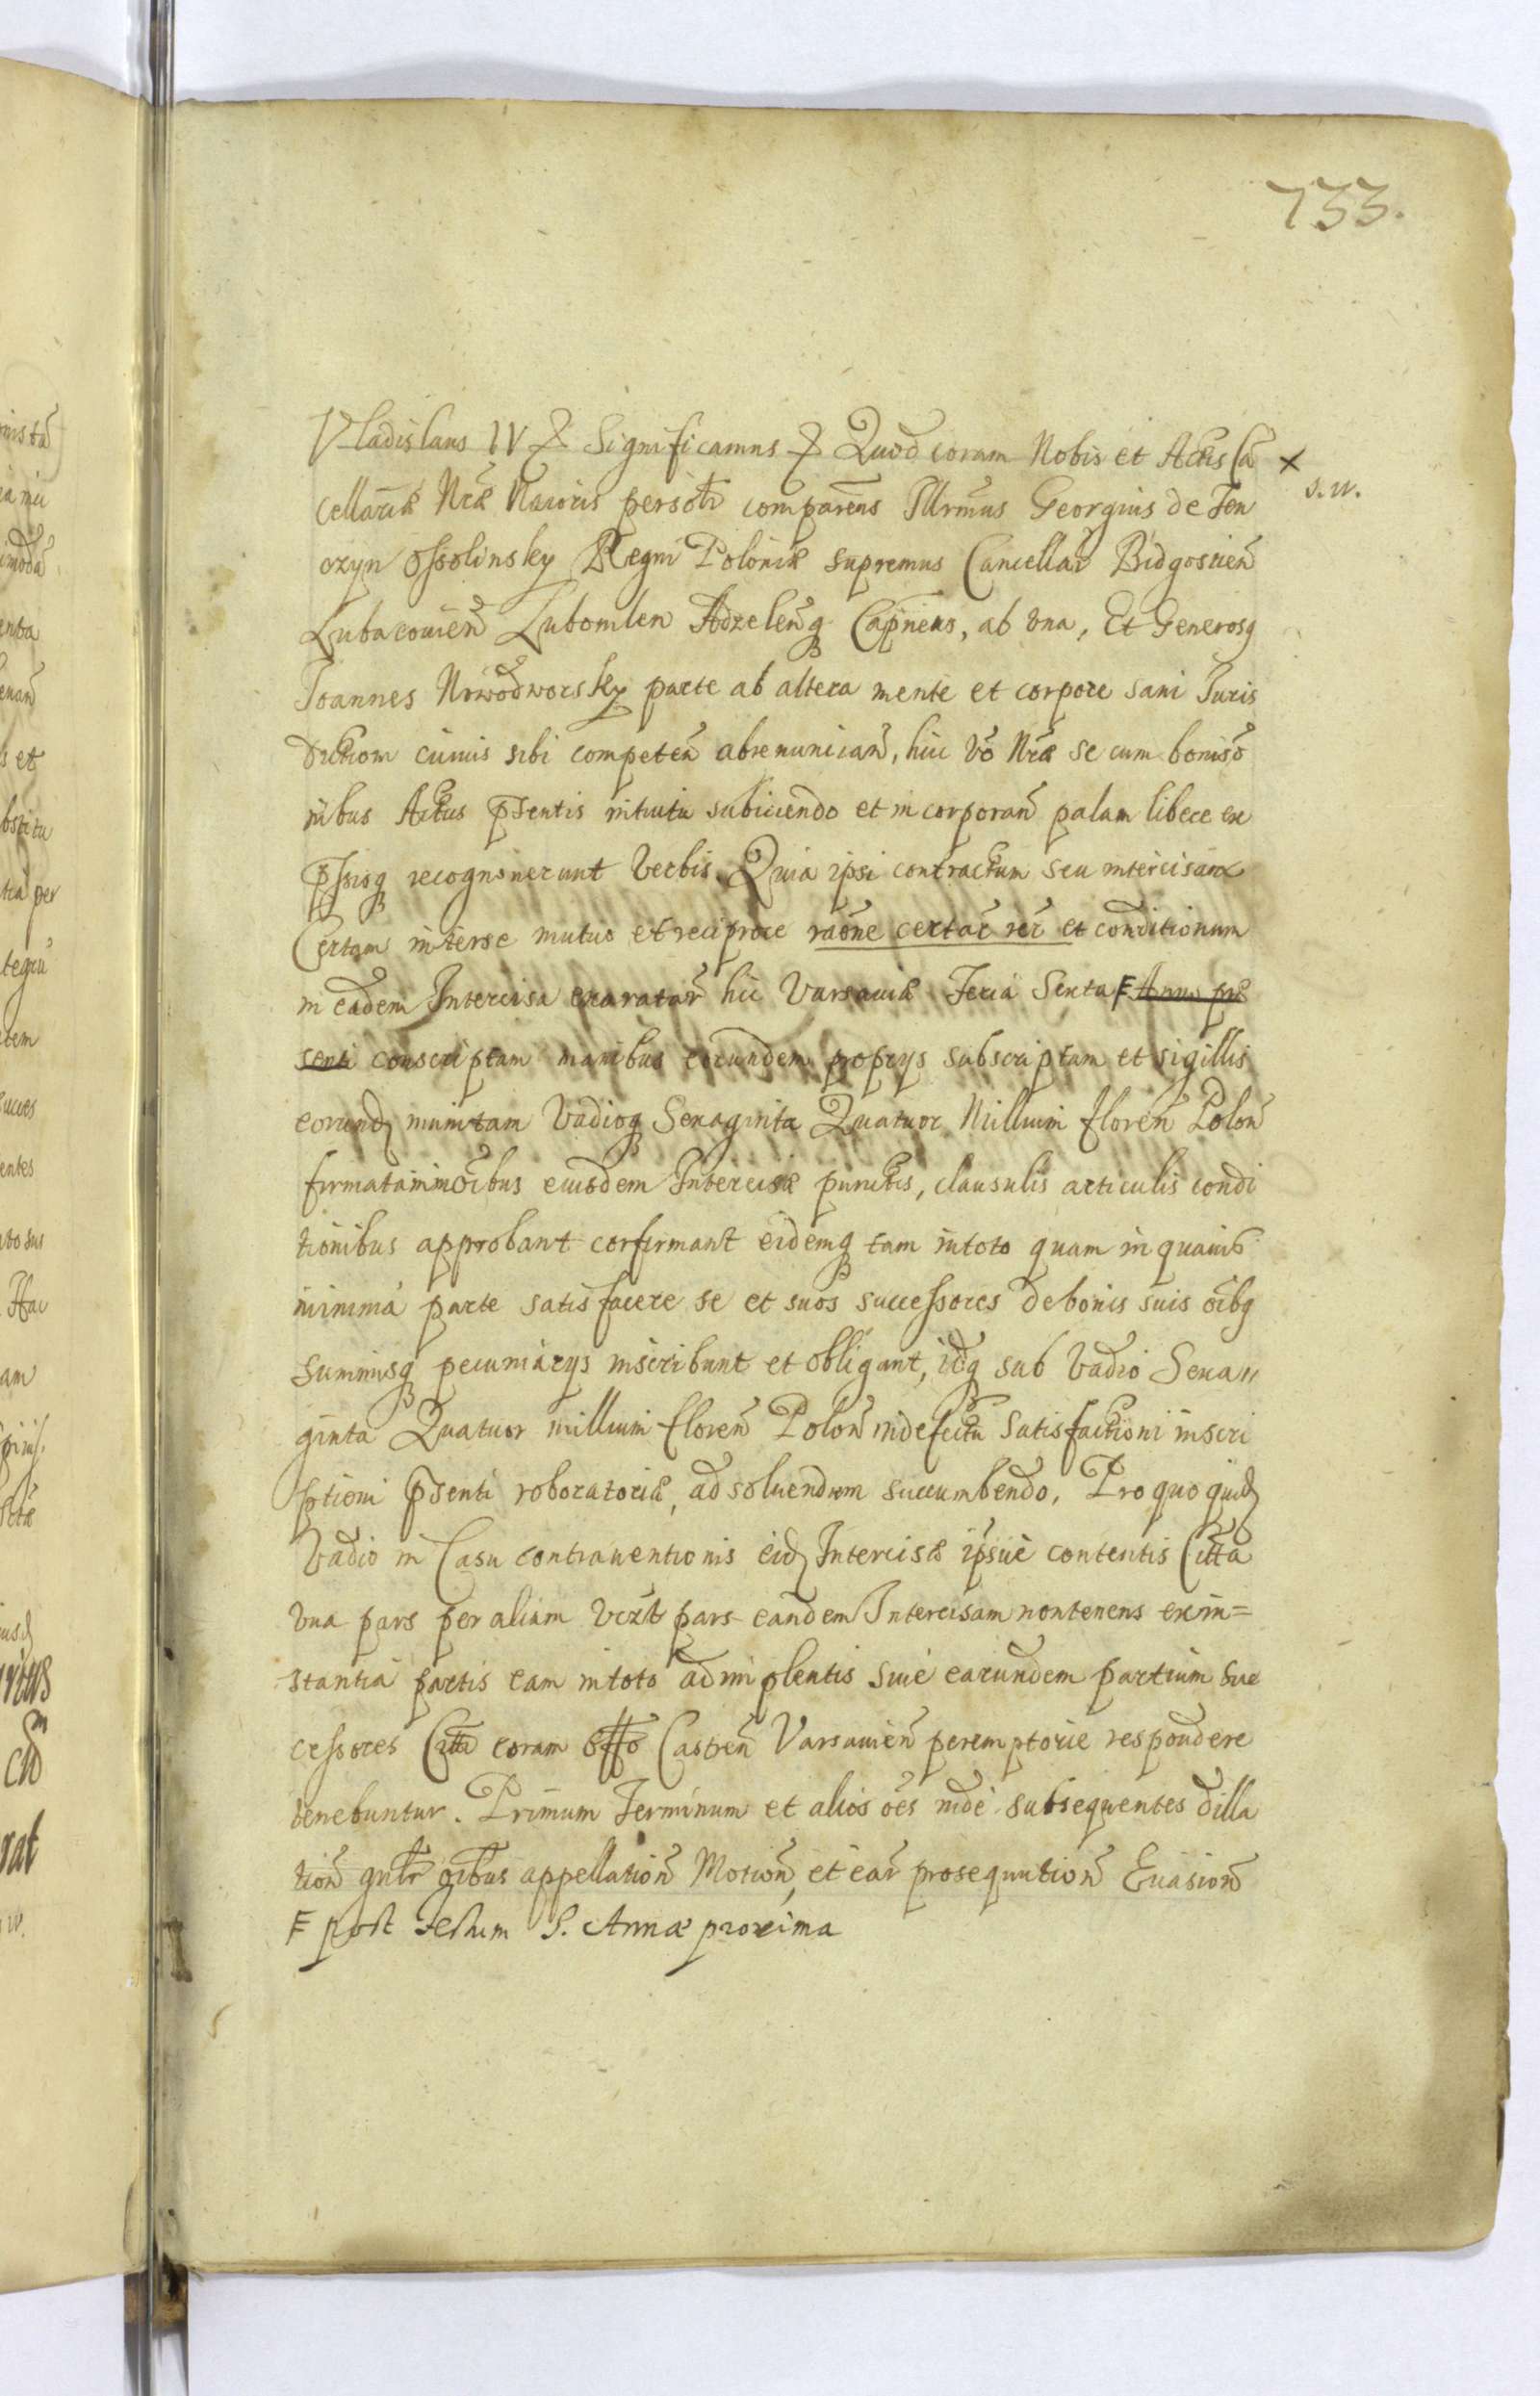 733.
Vladislaus IV &c Significamus &c Quod coram Nobis et Actis Cã
s. w.
cellariæ Nræ Maioris persolr comparens Illrmus Georgius de Ten
czyn Ossolinsky Regni Poloniæ supremus Cancellar̃ Bidgostień
Lubacouień Lubomlen Adzeleńq Capneus, ab vna, Et Generosq
Joannes Nowodworsky parte ab altera mente et corpore sani Juris
dictioni cuiuis sibi competeñ abrenuncian̄, huic vo Nræ se cum bonis o
nibus Actus psentis intuitu subiiciendo et incorporan̄ palam libere ex
pssisq recognouerunt verbis. Quia ipsi contractum seu intercisam
Certam interse mutuo et reciproce raõne certar̃ rer̃ et conditionum
in eadem Intercisa exaratar̃ hic Varsauiæ Feria Sexta F Anno præ
senti conscriptam manibus eorundem proprys subscriptam et sigillis
eorund munitam vadioq Sexaginta Quatuor Millium floreñ Polon̄
firmatam in oibus eiusdem Intercisæ punctis, clausulis articulis condi
tionibus approbant confirmant eidemq tam intoto quam in quauis
minima parte satisfacere se et suos successores de bonis suis oibq
summisq pecuniarys inscribunt et obligant, idq sub vadio Sexa"
ginta Quatuor millium floreñ Polon̄ in defectu satisfactioni inscri
ptioni psenti roboratoriæ, ad soluendum succumbendo. Pro quo quid
vadio in Casu contrauentionis eid Intercisæ ipsiue contentis Citta
vna pars per aliam vizt pars eandem Intercisam nontenens ex in=
stantia partis eam intoto adimplentis siue earundem partium suc
cessores Citta coram offo Castreñ Varsauień peremptorie respondere
tenebuntur. Primum Terminum et alios oes inde subsequentes dilla
tion̄ gnlr oibus appellation̄ Motion̄, et ear̃ prosequution̄ Euasion̄
F post Festum S. Annæ proxima